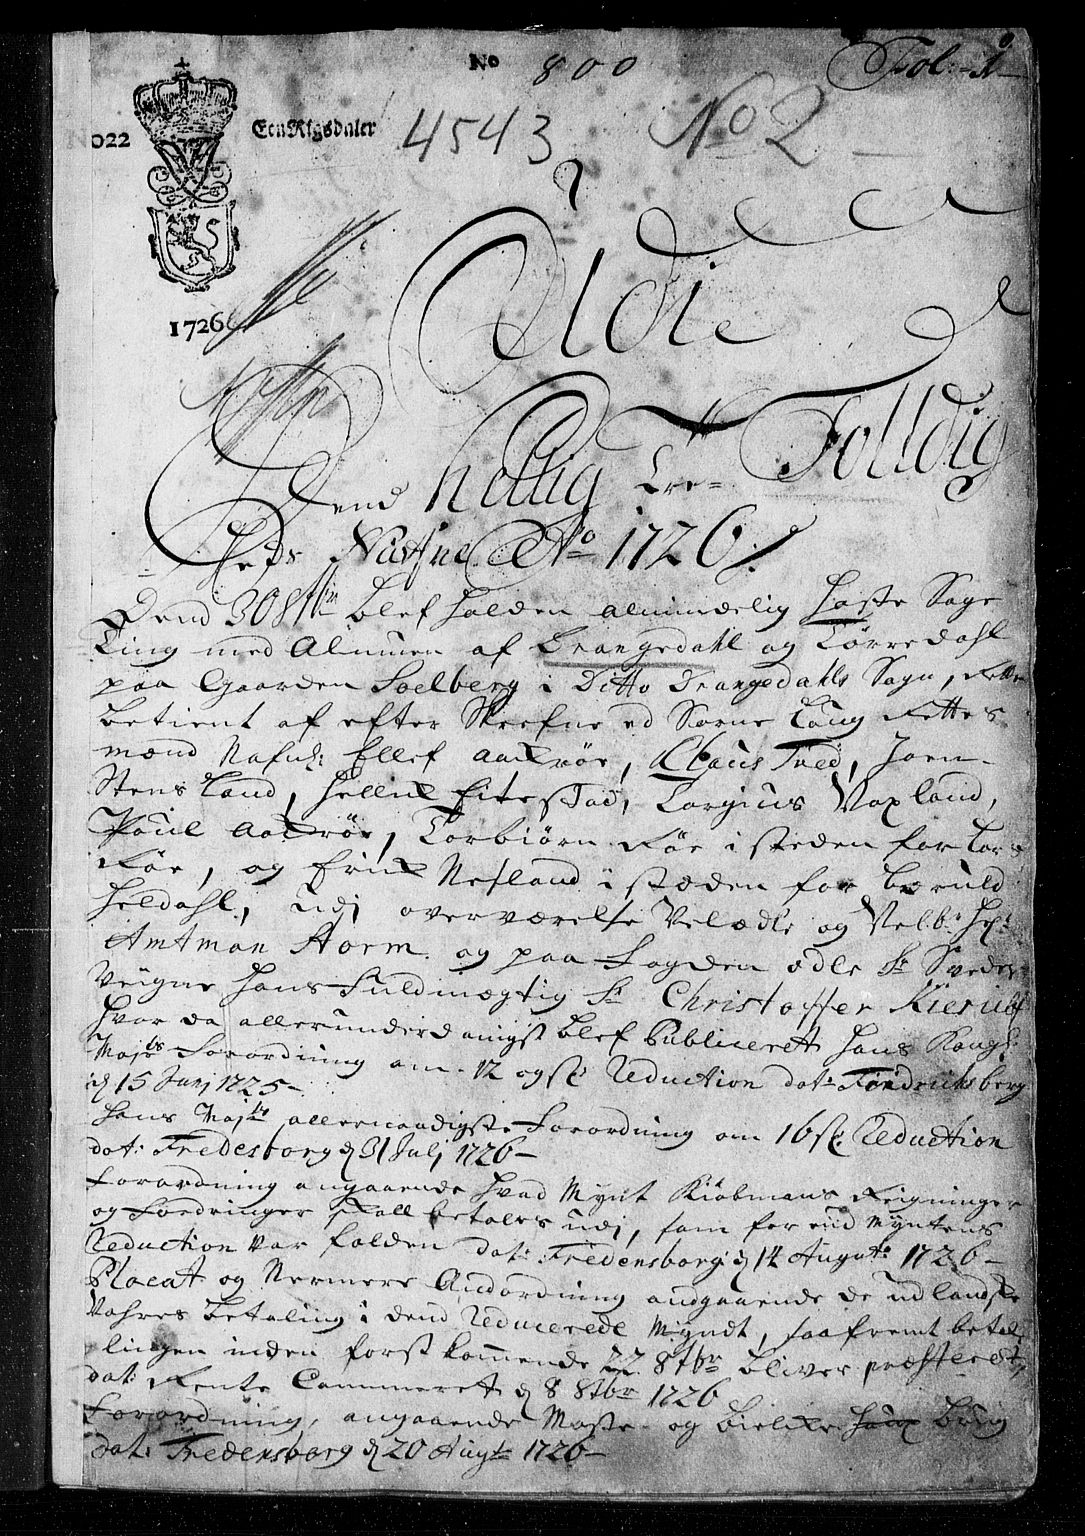 No 800 Fol: 1
No 22 Een Rigsdaler 4543 No 2
1726
Udi
Dend hellig Tre- Folldig
Heds Nafne Ao 1726
Dend 30 8tbr blef holden almindelig Høste Sage
Ting med Almuen af Drangedahl og Tørredahl
paa Gaarden Soelberg i Ditto Drangedahls Sogn, Rette
betient af efter Skrefne ed Sorne Laug Rettes
mænd Nafnl: Ellef Aackrøe, Claus Tved, Joen
Stensland, Hellik Eitestad, Torgius Voxland,
Poul Aackrøe, Torbiørn Røe i steden for Tor
Røe, og Erik Nesland i stæden for
Heldahl, udi overværelse Velædle og Velb: Hr:
Amtman Storm og paa Fogden ædle Sr
Veigne hans Fuldmægtig Sr Christoffer
hvor da allerunderdanigst blef Publiceret hans Kongl:
Majts Forordning om 12 og Reduction dat: Fridrichsberg
d 15 Junj 1725
Hans Majts allernaadigste Forordning om 16 Reduction
dat: Fredesborg d 31 Julj 1726
Forordning angaaende hvad Mynt Kiøbmans Reigninger
og Fordringer skall betales udj, som forend Myntens
Reduction var falden dat: Fredensborg d 14 Augti 1726
Placat og Nermere Andordning andgaaende de udlandske
Vahres betaling i dend Reducerede Myndt, saafremt betal
lingen inden forstkommende 22 8tbr bliver præsteret,
dat: Rente Cammeret d 8 8tbr 1726
Forordning, angaaende Maste og bielke brug
dat: Fredensborg d 20 Augti 1726